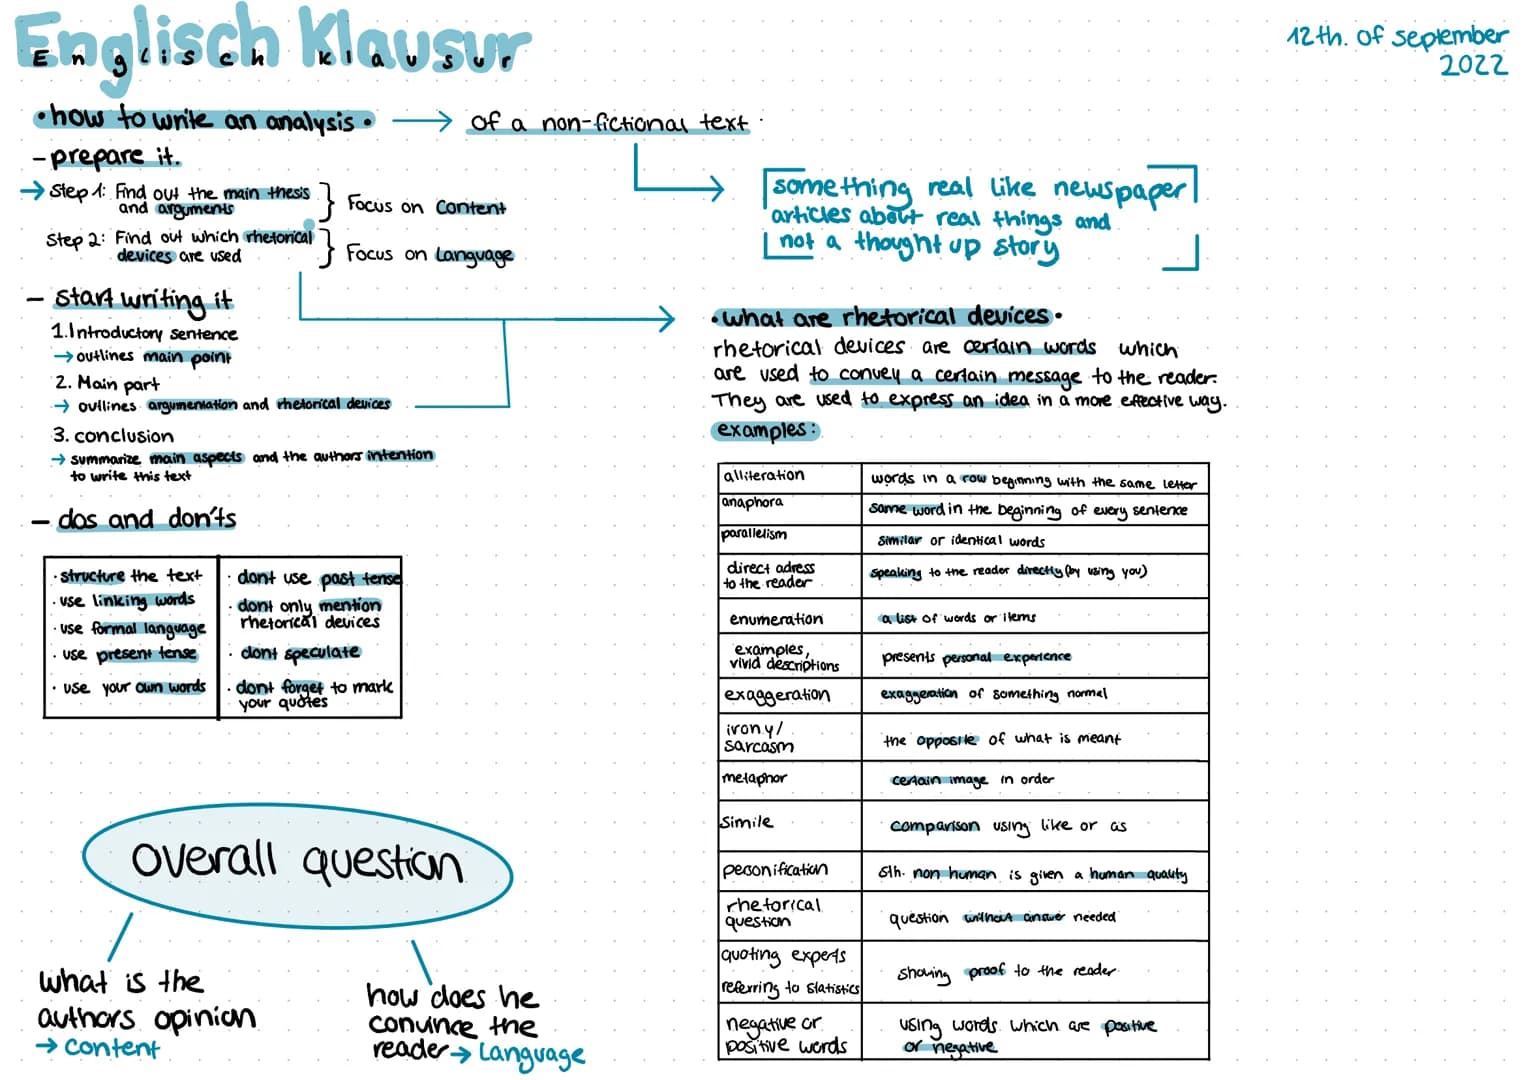 Englisch Klausur
Englisch Klausur
12th. of september
2022
• how to write an analysis • → of a non-fictional text
- prepare it.
→ Step 1: Find out the main thesis
and arguments
} Focus on Content
Step 2: Find out which rhetorical
devices are used
} Focus on Language
something real like newspaper
articles about real things and
not a thought up story
- start writing it
1. Introductory sentence
→ outlines main point
2. Main part
→ outlines argumentation and rhetorical devices
3. conclusion
→ summarize main aspects and the authors intention
to write this text
- dos and don'ts
· structure the text
· use linking words
· use formal language
· use present tense
· use your own words
· dont use past tense
· dont only mention
rhetorical devices
· dont speculate
· dont forget to mark
your quotes
overall question
what is the
authors opinion
→ Content
how does he
convince the
reader → Language
• what are rhetorical devices •
rhetorical devices are certain words which
are used to convey a certain message to the reader.
They are used to express an idea in a more effective way.
examples:
alliteration words in a row beginning with the same letter
anaphora same word in the beginning of every sentence
parallelism similar or identical words
direct adress
to the reader
speaking to the reader directly (by using you)
enumeration a list of words or items
examples,
vivid descriptions
presents personal experience
exaggeration exaggeration of something normal
irony/
sarcasm
the opposite of what is meant
metaphor certain image in order
simile comparison using like or as
peconification sth. non human is given a human quality
rhetorical
question
question without answer needed
quoting experts
referring to statistics
showing proof to the reader
negative or
positive words
using words which are positive
or negative